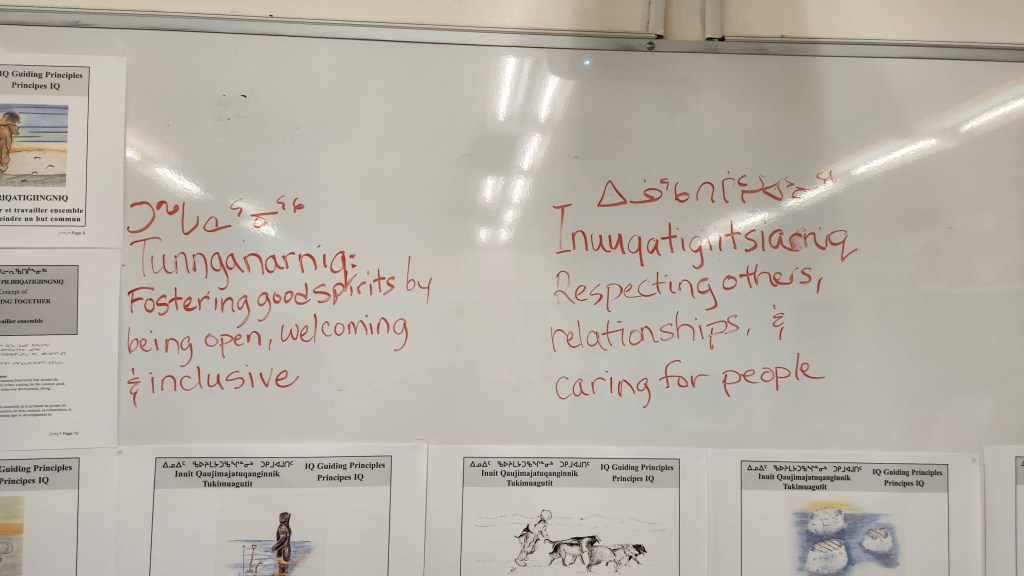 IQ Guiding Principles
Principes IQ
RIQATIGIINGNIQ
r et travailler ensemble
eindre un but commun
Page 8
PILIRIQATIGIINGNIQ
Concept of
ING TOGETHER
vailler ensemble
Page 10
ᑐᙵᓇᕐᓂᖅ
Tunnganarniq:
Fostering good spirits by
being open, welcoming
& inclusive
Inuuqatigiitsiarniq
Respecting others,
relationships, &
caring for people
Guiding Principles
Principes IQ
ᐃᓄᐃᑦ ᖃᐅᔨᒪᔭᑐᖃᖏᓐᓂᒃ ᑐᑭᒧᐊᒍᑎᑦ
Inuit Qaujimajatuqanginnik
Tukimuagutit
IQ Guiding Principles
Principes IQ
ᐃᓄᐃᑦ ᖃᐅᔨᒪᔭᑐᖃᖏᓐᓂᒃ ᑐᑭᒧᐊᒍᑎᑦ
Inuit Qaujimajatuqanginnik
Tukimuagutit
IQ Guiding Principles
Principes IQ
ᐃᓄᐃᑦ ᖃᐅᔨᒪᔭᑐᖃᖏᓐᓂᒃ ᑐᑭᒧᐊᒍᑎᑦ
Inuit Qaujimajatuqanginnik
Tukimuagutit
IQ Guiding Principles
Principes IQ